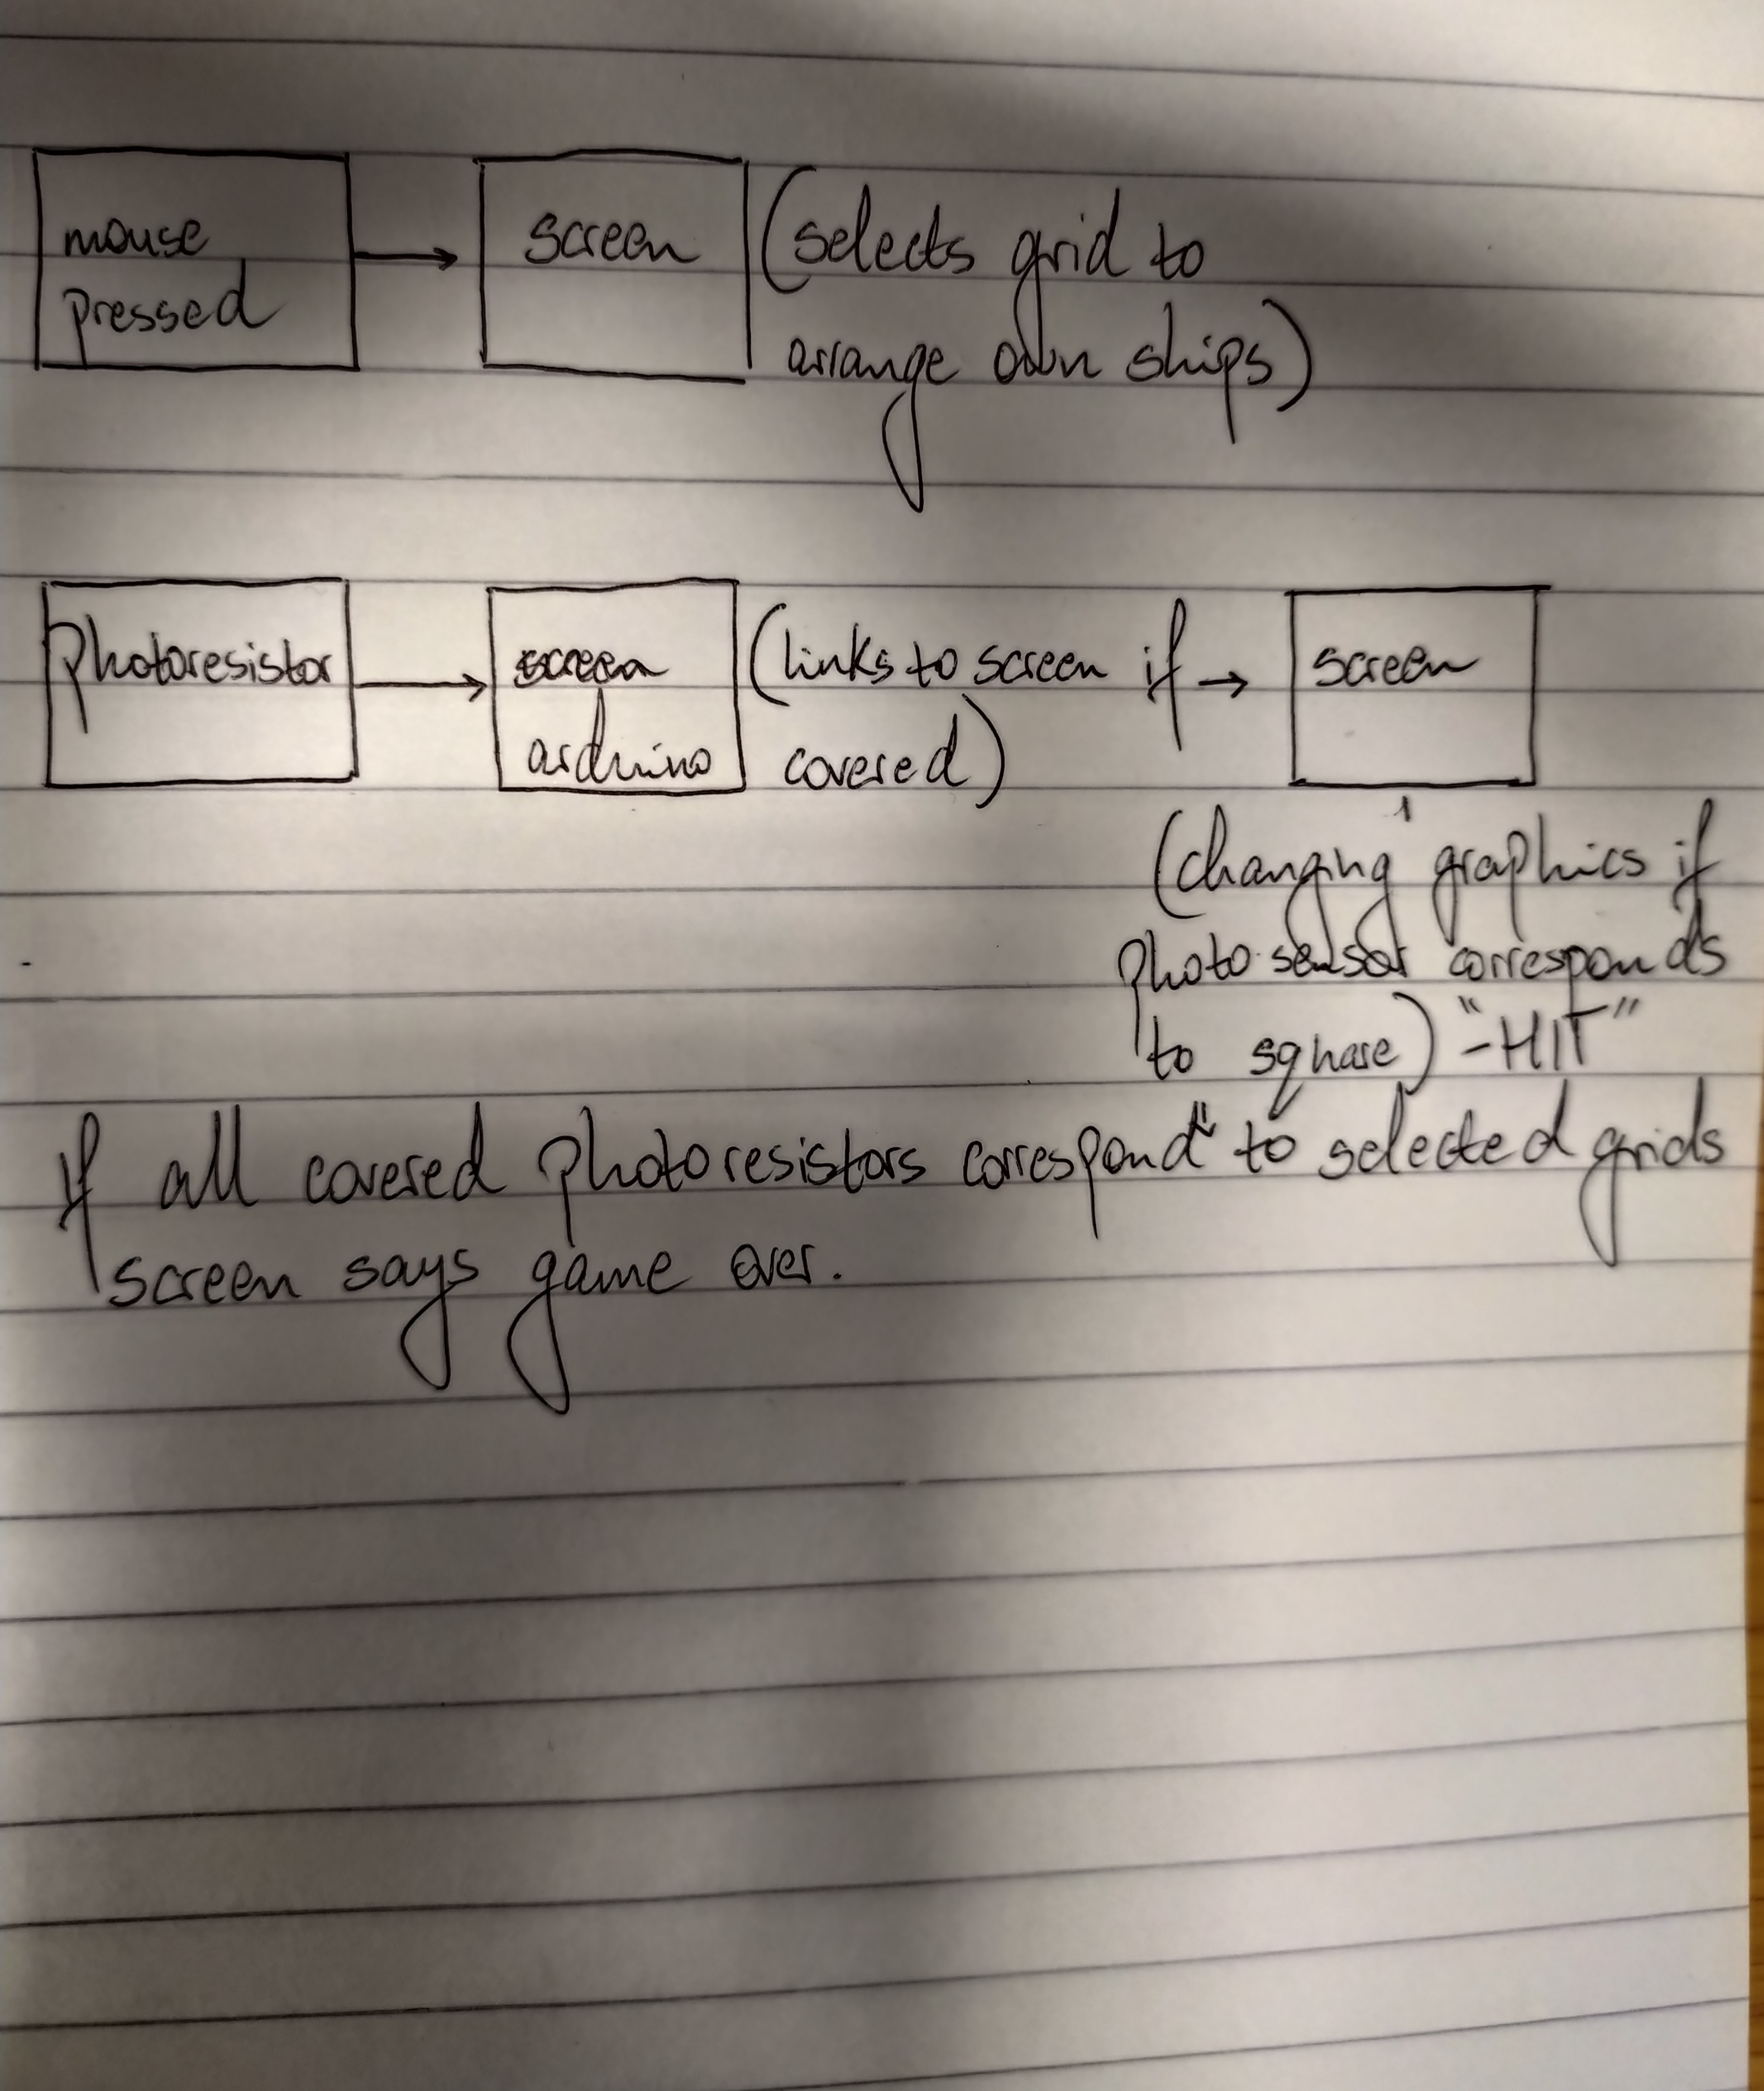 mouse
pressed
screen
(selects grid to
arrange own ships)
photoresistor
screen
arduino
(links to screen if
covered)
screen
(changing graphics if
photo sensor corresponds
to square) - "HIT"
If all covered photoresistors correspond to selected grids
screen says game over.